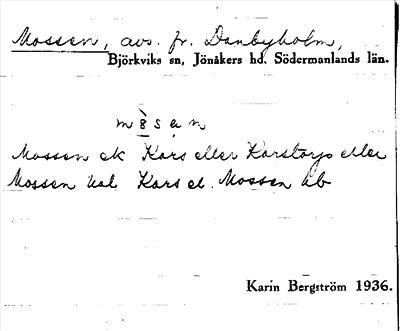 Mossen, avs. fr. Danbyholm,
Björkviks sn, Jönåkers hd, Södermanlands län.
m ò̱ s ạ n
Mossen ek Kors eller Korstorp eller
Mossen hal Kors el. Mossen hb
Karin Bergström 1936.